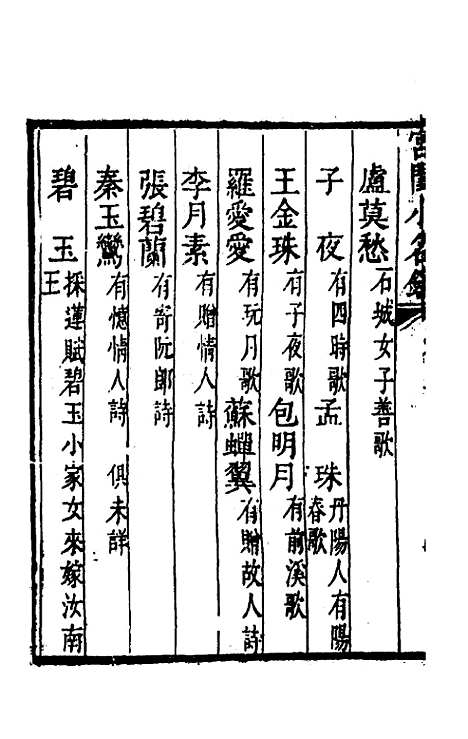 宮閨小名錄
盧莫愁 石城女子善歌
子夜 有四時歌 孟珠 丹陽人有陽春歌
王金珠 有子夜歌 包明月 有前溪歌
羅愛愛 有玩月歌 蘇蟬翼 有贈故人詩
李月素 有贈情人詩
張碧蘭 有寄阮郎詩
秦玉鸞 有憶情人詩 俱未詳
碧玉 採蓮賦碧玉小家女來嫁汝南王